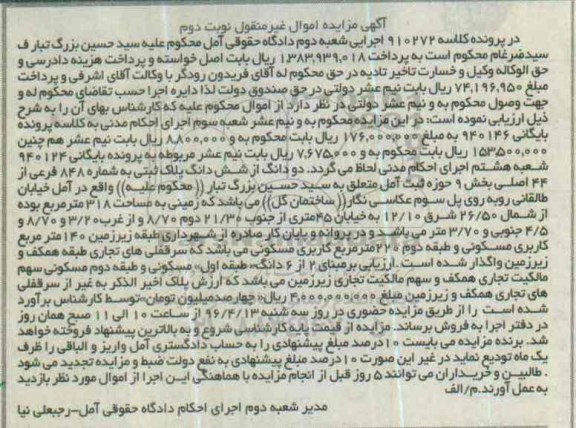 آگهی مزایده اموال غیرمنقول نوبت دوم
در پرونده کلاسه ۹۱۰۲۷۲ اجرایی شعبه دوم دادگاه حقوقی آمل محکوم علیه سید حسین بزرگ تبار ف
سیدضرغام محکوم است به پرداخت ۱،۳۸۳،۹۳۹،۰۱۸ ریال بابت اصل خواسته و پرداخت هزینه دادرسی و
حق الوکاله وکیل و خسارت تاخیر تادیه در حق محکوم له آقای فریدون رودگر با وکالت آقای اشرفی و پرداخت
مبلغ ۷۴،۱۹۶،۹۵۰ ریال بابت نیم عشر دولتی در حق صندوق دولت لذا دایره اجرا حسب تقاضای محکوم له و
جهت وصول محکوم به و نیم عشر دولتی در نظر دارد از اموال محکوم علیه که کارشناس بهای آن را به شرح
ذیل ارزیابی نموده است: در این مزایده محکوم به و نیم عشر شعبه سوم اجرای احکام مدنی به کلاسه پرونده
بایگانی ۹۴۰۱۴۶ به مبلغ ۱۷۶،۰۰۰،۰۰۰ ریال بابت محکوم به و ۸،۸۰۰،۰۰۰ ریال بابت نیم عشر هم چنین
۱۵۳۵۰۰،۰۰۰ ریال بابت محکوم به و ۷،۶۷۵،۰۰۰ ریال بابت نیم عشر مربوطه به پرونده بایگانی ۹۴۰۱۲۴
شعبه هشتم اجرای احکام مدنی لحاظ می گردد. دو دانگ از شش دانگ پلاک ثبتی به شماره ۸۴۸ فرعی از
۴۴ اصلی بخش ۹ حوزه ثبت آمل متعلق به سید حسین بزرگ تبار ((محکوم علیه)) واقع در آمل خیابان
طالقانی روبه روی پل سوم عکاسی نگار((ساختمان گل)) می باشد که زمینی به مساحت ۳۱۸ مترمربع بوده
از شمال ۲۶/۵۰ شرق ۱۲/۱۰ به خیابان ۴۵متری از جنوب ۲۱/۳۰ دوم ۸/۷۰ و از غرب۳/۲۰ و ۸/۷۰ و
۴/۵ جنوبی و ۳/۷۰ متر می باشد و در پروانه و پایان کار صادره از شهرداری طبقه زیرزمین ۱۴۰متر مربع
کاربری مسکونی و طبقه دوم ۲۲۰مترمربع کاربری مسکونی می باشد که سرقفلی های تجاری طبقه همکف و
زیرزمین واگذار شده است .ارزیابی برمبنای ۲ از ۶ دانگ« طبقه اول» مسکونی و طبقه دوم مسکونی سهم
مالکیت تجاری همکف و سهم مالکیت تجاری زیرزمین می باشد که ارزش پلاک اخیر الذکر به غیر از سرقفلی
های تجاری همکف و زیرزمین مبلغ ۴،۰۰۰،۰۰۰،۰۰۰ ریال« چهارصدمیلیون تومان»توسط کارشناس برآورد
شده است را از طریق مزایده حضوری در روز سه شنبه ۹۶/۴/۱۳ از ساعت ۱۰ الی ۱۱ صبح همان روز
در دفتر اجرا به فروش برساند. مزایده از قیمت پایه کارشناسی شروع و به بالاترین پیشنهاد فروخته خواهد
شد. برنده مزایده می بایست ۱۰درصد مبلغ پیشنهادی را به حساب دادگستری آمل واریز و الباقی را ظرف
یک ماه تودیع نماید در غیر این صورت ۱۰درصد مبلغ پیشنهادی به نفع دولت ضبط و مزایده تجدید می شود
. طالبین و خریداران می توانند ۵ روز قبل از انجام مزایده با هماهنگی این اجرا از اموال مورد نظر بازدید
به عمل آورند.م/الف
مدیر شعبه دوم اجرای احکام دادگاه حقوقی آمل-رجبعلی نیا